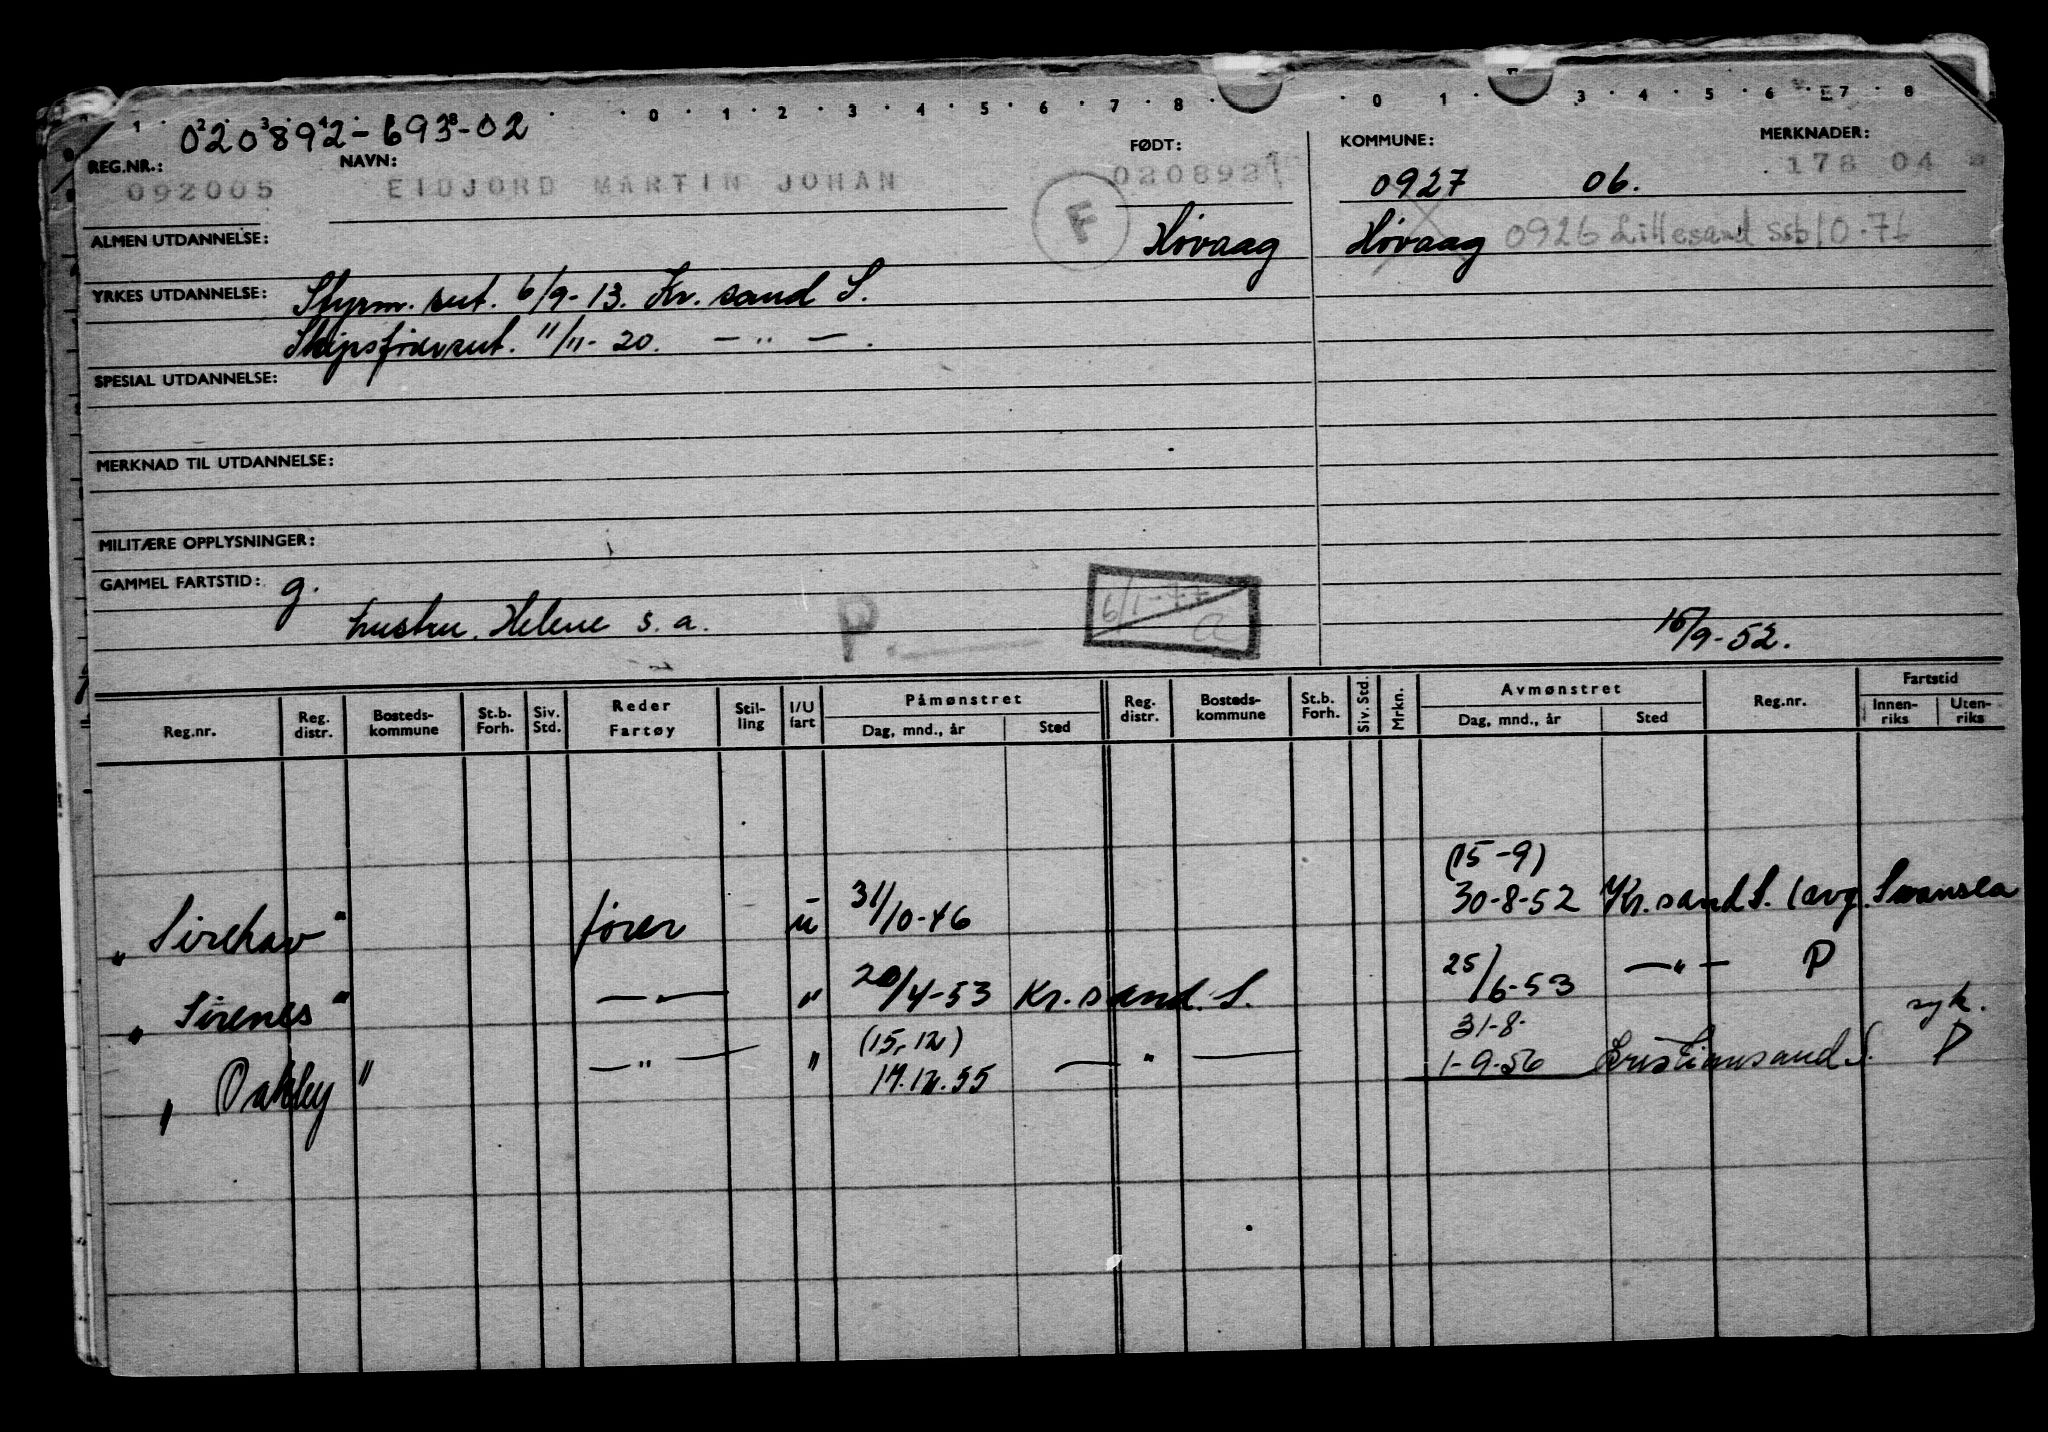 020892-693-02
0 1 2 3 4 5 6 7 8 0 1 3 4 5 6 7 8
REG.NR.: NAVN: FØDT: KOMMUNE: MERKNADER:
092005 EIDJORD MARTIN JOHAN 020892 0927 06. 178 04
F
ALMEN UTDANNELSE: Høvaag Høvaag 0926 Lillesand ssb 10-76
YRKES UTDANNELSE: Styrm. sut. 6/9-13. Kr. sand S.
Skipsførersut. 11/11-20. — " — .
SPESIAL UTDANNELSE:
MERKNAD TIL UTDANNELSE:
MILITÆRE OPPLYSNINGER:
GAMMEL FARTSTID: g.
hustru. Helene s. a. P. 6/1-77 a 15/9-52.
Reg.nr. Reg. distr. Bosteds- kommune St.b. Forh. Siv. Std. Reder Fartøy Stil- ling I/U fart Påmønstret Dag, mnd., år Sted Reg. distr. Bosteds- kommune St.b. Forh. Siv. Std. Mrkn. Avmønstret Dag, mnd., år Sted Reg.nr. Fartstid Innen- riks Uten- riks
(15-9)
„Sirehav" fører u 31/10-46 30-8-52 Kr. sand S. (avg. Swansea
„Sirenes" — " — " 20/4-53 Kr. sand. S. 25/6-53 — " — P
(15.12) 31-8. syk.
„Oakley" — " — " 17.12.55 — " — 1-9-56 Kristiansand S. P